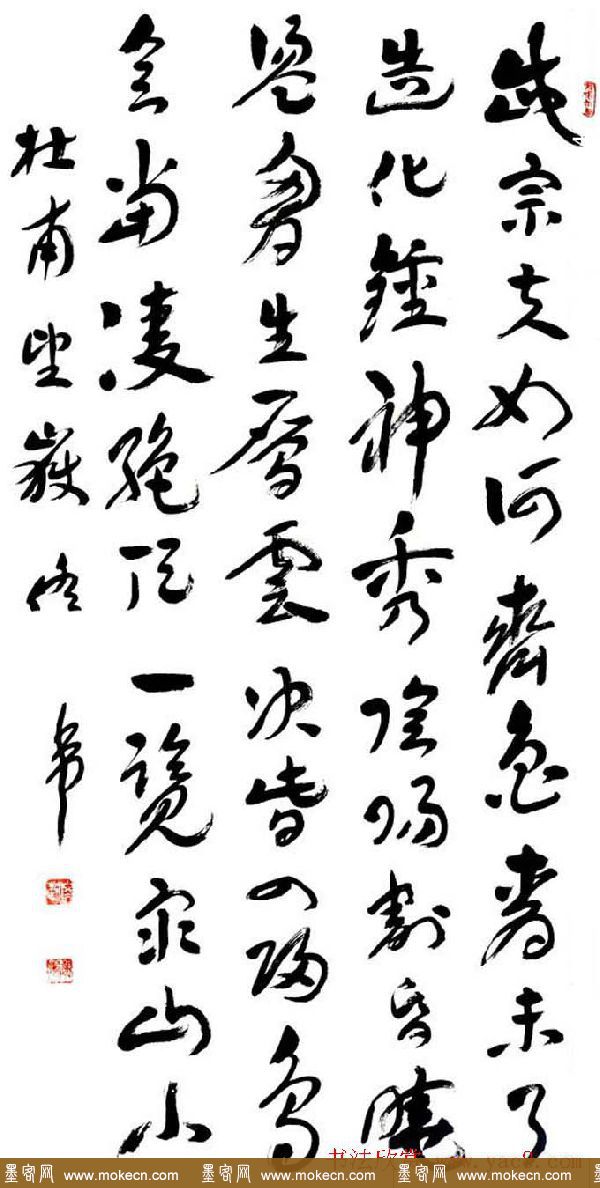 岱宗夫如何齊魯青未了
造化鍾神秀陰陽割昏曉
盪胸生層雲決眥入歸鳥
會當凌絕頂一覽衆山小
杜甫望嶽佟韋
书法欣赏www.yac8.com
墨客网 www.mokecn.com 墨客网 www.mokecn.com 墨客网 www.mokecn.com